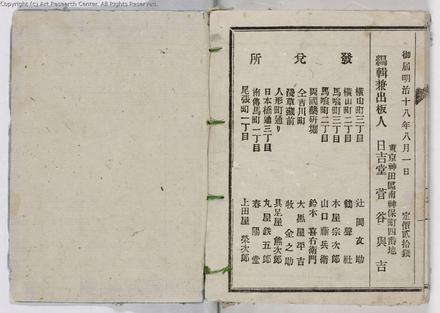 Copyright (C) Art Research Center. All Rights Reserved.
御届明治十八年八月一日 定價貳拾錢
東京神田區南神保町四番地
編輯兼出板人 日吉堂 菅谷與吉
發兌所
橫山町三丁目 辻岡文助
橫山町二丁目 鶴聲社
馬喰町三丁目 木屋宗次郎
馬喰町二丁目 山口藤兵衛
両國藥研堀 鈴木喜右衛門
仝吉川町 大黑屋平吉
淺草藏前 牧金之助
人形町通り 具足屋熊次郎
日本橋通三丁目 丸屋鉄五郎
南傳馬町一丁目 春陽堂
尾張町一丁目 上田屋榮次郎